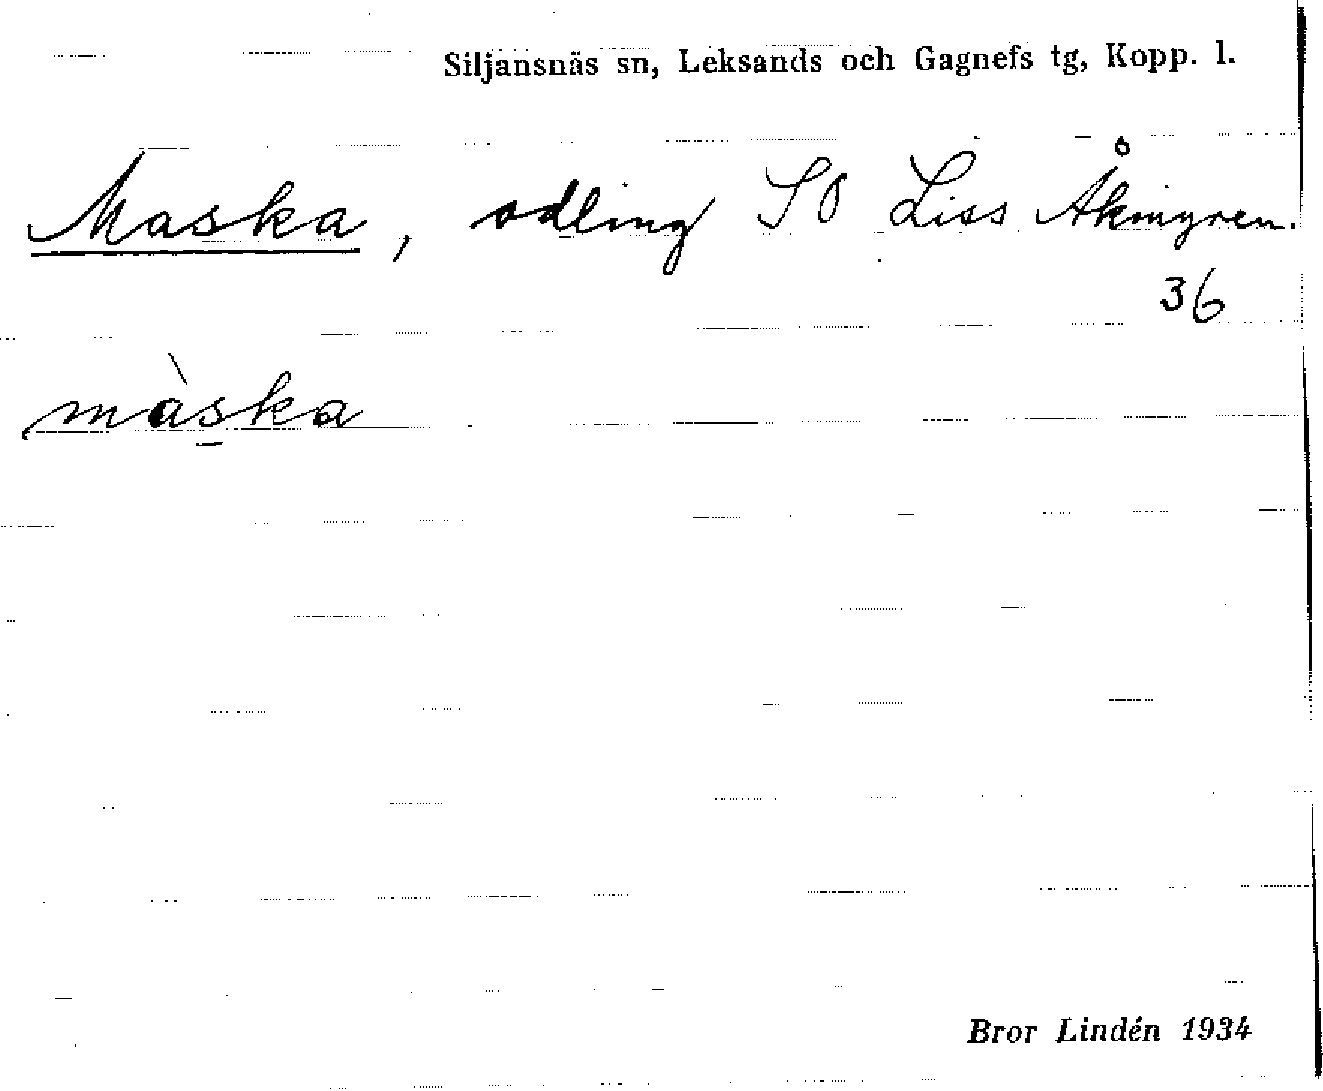 Siljansnäs sn, Leksands och Gagnefs tg, Kopp. l.
Maska, odling SO Liss Åkmyren.
36
màska
Bror Lindén 1934